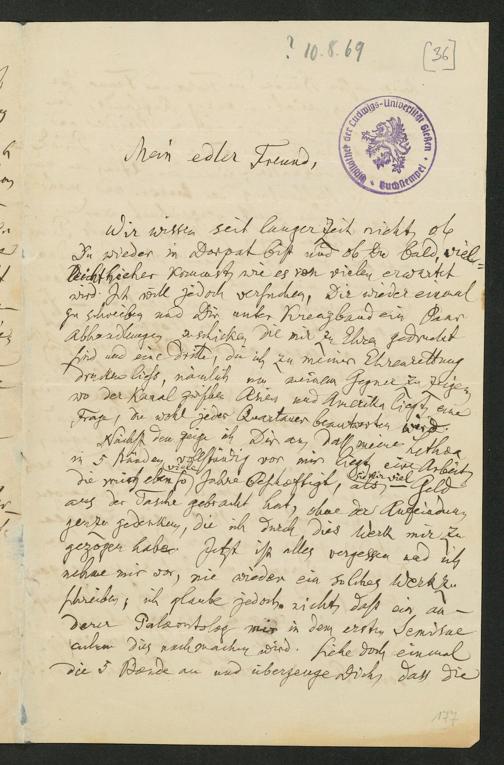 ? 10.8.69
[36]
Bibliothek der Ludwigs-Universität Gießen
Buchstempel
Mein edler Freund,
Wir wissen seit langer Zeit nicht, ob
Du wieder in Dorpat bist und ob Du bald, viel=
leicht hieher kommst, wie es von vielen erwartet
wird. Ich will jedoch versuchen, Dir wieder einmal
zu schreiben und Dir unter Kreuzband ein Paar
Abhandlungen zuschicken, die mir zu Ehren gedruckt
sind und eine dritte, die ich zu meiner Ehrenrettung
drucken liess, nämlich um meinem Gegner zu zeigen
wo der Kanal zwischen Asien und Amerika liegt, eine
Frage, die wohl jeder Quartaner beantworten wird.
Nächst dem zeige ich Dir an, dass meine Lethaea
in 5 Bänden vollständig vor mir liegt, eine Arbeit,
die mich eben so viele Jahre beschäftigt, als viel Geld
aus der Tasche gebracht hat, ohne der Anfeindung
zu gedenken, die ich durch dies Werk mir zu
gezogen habe. Jetzt ist alles vergessen und ich
nehme mir vor, nie wieder ein solches Werk zu
schreiben; ich glaube jedoch nicht, daß ein an-
derer Palaeontolog in dem ersten
dies nachmachen wird. Siehe doch einmal
die 5 Bände an und überzeuge Dich, dass die
177